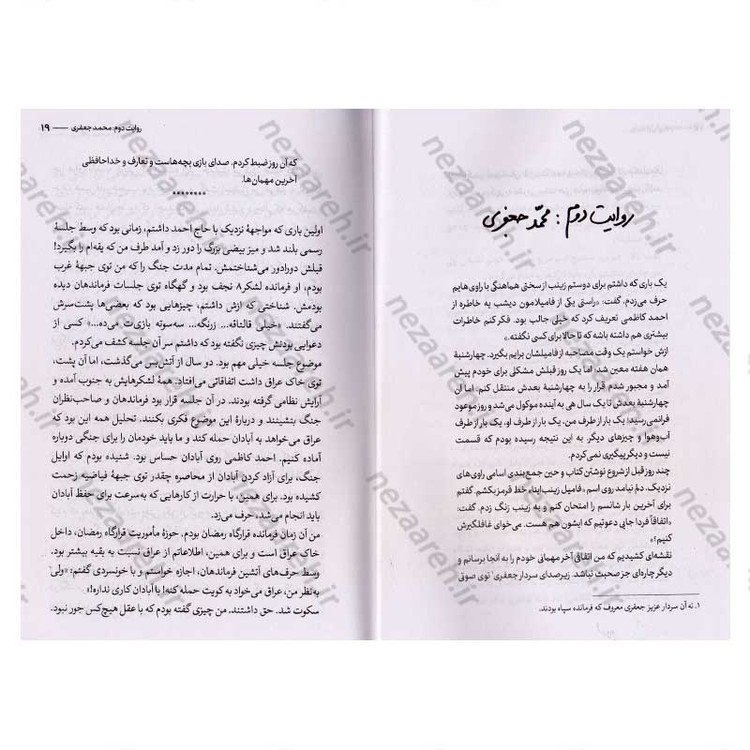 روایت دوم: محمّد جعفری
یک باری که داشتم برای دوستم زینب از سختی هماهنگی با راوی‌هایم
حرف می‌زدم، گفت: «راستی یکی از فامیلامون دیشب یه خاطره از
احمد کاظمی تعریف کرد که خیلی جالب بود. فکر کنم خاطرات
بیشتری هم داشته باشه که تا حالا برای کسی نگفته.»
ازش خواستم یک وقت مصاحبه از فامیلشان برایم بگیرد. چهارشنبۀ
همان هفته معین شد؛ اما یک روز قبلش مشکلی برای خودم پیش
آمد و مجبور شدم قرار را به چهارشنبۀ بعدش منتقل کنم. اما آن
چهارشنبۀ بعدش تا یک سال هی به آینده موکول می‌شد و روز موعود
فرانمی‌رسید؛ یک بار از طرف من. یک بار از طرف او. یک بار از طرف
آب‌وهوا و چیزهای دیگر. به این نتیجه رسیده بودم که قسمت
نیست و دیگر پیگیری نمی‌کردم.
چند روز قبل از شروع نوشتن کتاب و حین جمع‌بندی اسامی راوی‌های
نزدیک، دلم نیامد روی اسم «فامیل زینب‌اینا» خط قرمز بکشم. گفتم
برای آخرین بار شانسم را امتحان کنم و به زینب زنگ زدم. گفت:
«اتفاقاً فردا جایی دعوتیم که ایشون هم هست. می‌خوای غافلگیرش
کنیم؟»
نقشه‌ای کشیدیم که من اتفاقی آخر مهمانی خودم را به آنجا برسانم و
دیگر چاره‌ای جز صحبت نباشد. زیر صدای سردار جعفری¹ توی صوتی
۱. نه آن سردار عزیز جعفری معروف که فرمانده سپاه بودند.
روایت دوم: محمد جعفری ۱۹
که آن روز ضبط کردم، صدای بازی بچه‌هاست و تعارف و خداحافظی
آخرین مهمان‌ها.
********
اولین باری که مواجهۀ نزدیک با حاج احمد داشتم، زمانی بود که وسط جلسۀ
رسمی بلند شد و میز بیضی بزرگ را دور زد و آمد طرف من که یقه‌ام را بگیرد!
قبلش دورادور می‌شناختمش. تمام مدت جنگ را که من توی جبهۀ غرب
بودم، او فرمانده لشکر ۸ نجف بود و گهگاه توی جلسات فرماندهان دیده
بودمش. شناختی که ازش داشتم، چیزهایی بود که بعضی‌ها پشت‌سرش
می‌گفتند. «خیلی قالتاقه... زرنگه... سه‌سوته بازی‌ت می‌ده...» کسی از
دعوایی بودنش چیزی نگفته بود که داشتم سر آن جلسه کشف می‌کردم.
موضوع جلسه خیلی مهم بود. دو سال از آتش‌بس می‌گذشت، اما آن پشت،
توی خاک عراق داشت اتفاقاتی می‌افتاد. همۀ لشکرهایش به جنوب آمده و
آرایش نظامی گرفته بودند. در آن جلسه قرار بود فرماندهان و صاحب‌نظران
جنگ بنشینند و دربارۀ این موضوع فکری بکنند. تحلیل همه این بود که
عراق می‌خواهد به آبادان حمله کند و ما باید خودمان را برای جنگی دوباره
آماده کنیم. احمد کاظمی روی آبادان حساس بود. شنیده بودم که اوایل
جنگ، برای آزاد کردن آبادان از محاصره چقدر توی جبهۀ فیاضیه زحمت
کشیده بود. برای همین، با حرارت از کارهایی که به‌سرعت برای حفظ آبادان
باید انجام می‌شد، حرف می‌زد.
من آن زمان فرمانده قرارگاه رمضان بودم. حوزۀ مأموریت قرارگاه رمضان، داخل
خاک عراق است و برای همین، اطلاعاتم از عراق نسبت به بقیه بیشتر بود.
وسط حرف‌های آتشین فرماندهان، اجازه خواستم و با خونسردی گفتم: «ولی
به‌نظر من، عراق می‌خواد به کویت حمله کنه! با آبادان کاری نداره!»
سکوت شد. حق داشتند. من چیزی گفته بودم که با عقل هیچ‌کس جور نبود.
nezaareh.ir